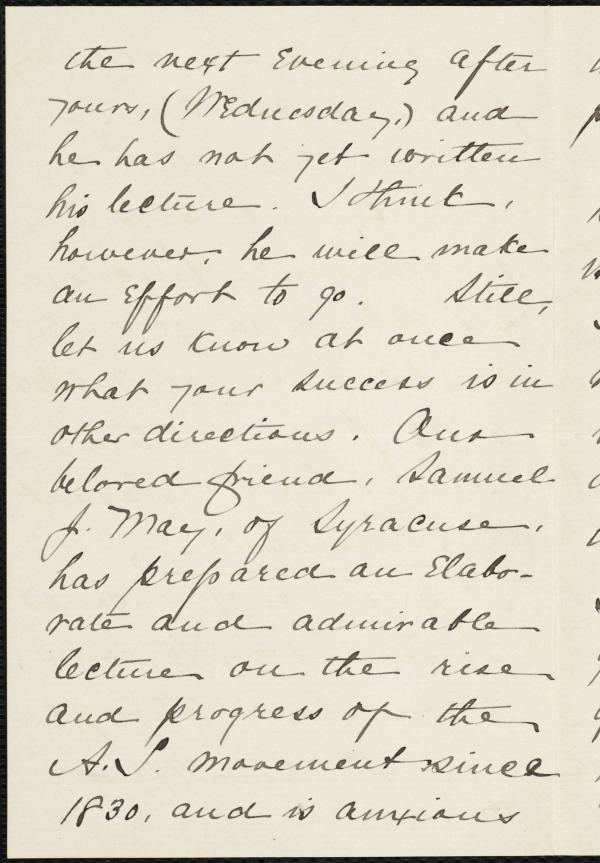 the next Evening after
yours, (Wednesday,) and
he has not yet written
his lecture. I think,
however, he will make
an Effort to go. Still,
let us know at once
what your success is in
other directions. Our
beloved friend, Samuel
J. May, of Syracuse,
has prepared an Elabo-
rate and admirable
lecture on the rise
and progress of the
A.S. movement since
1830, and is anxious